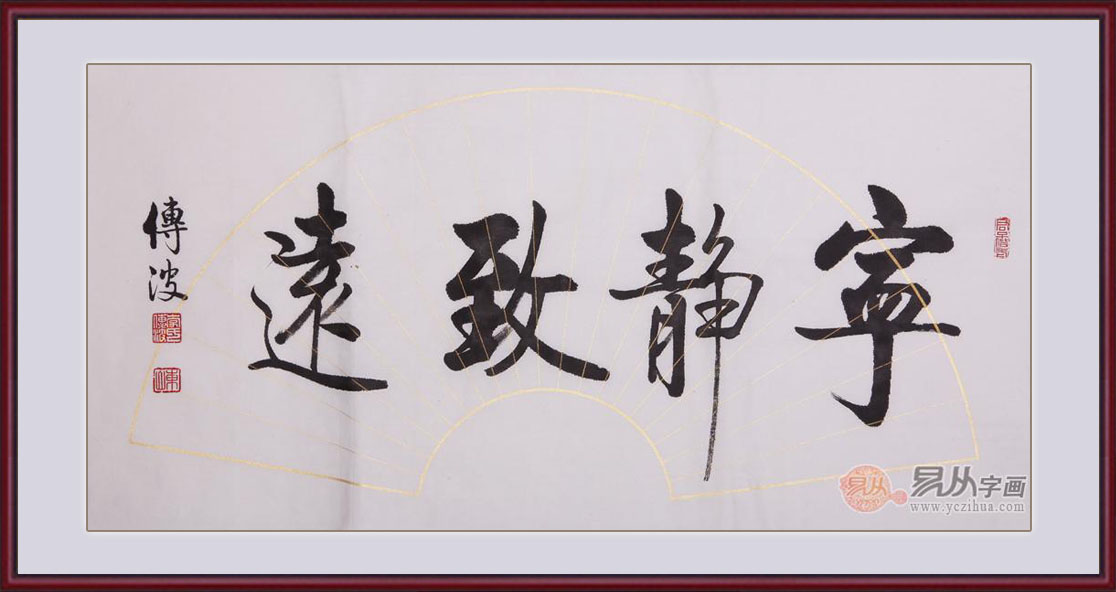 寧靜致遠
傅波
易从字画
www.yczihua.com